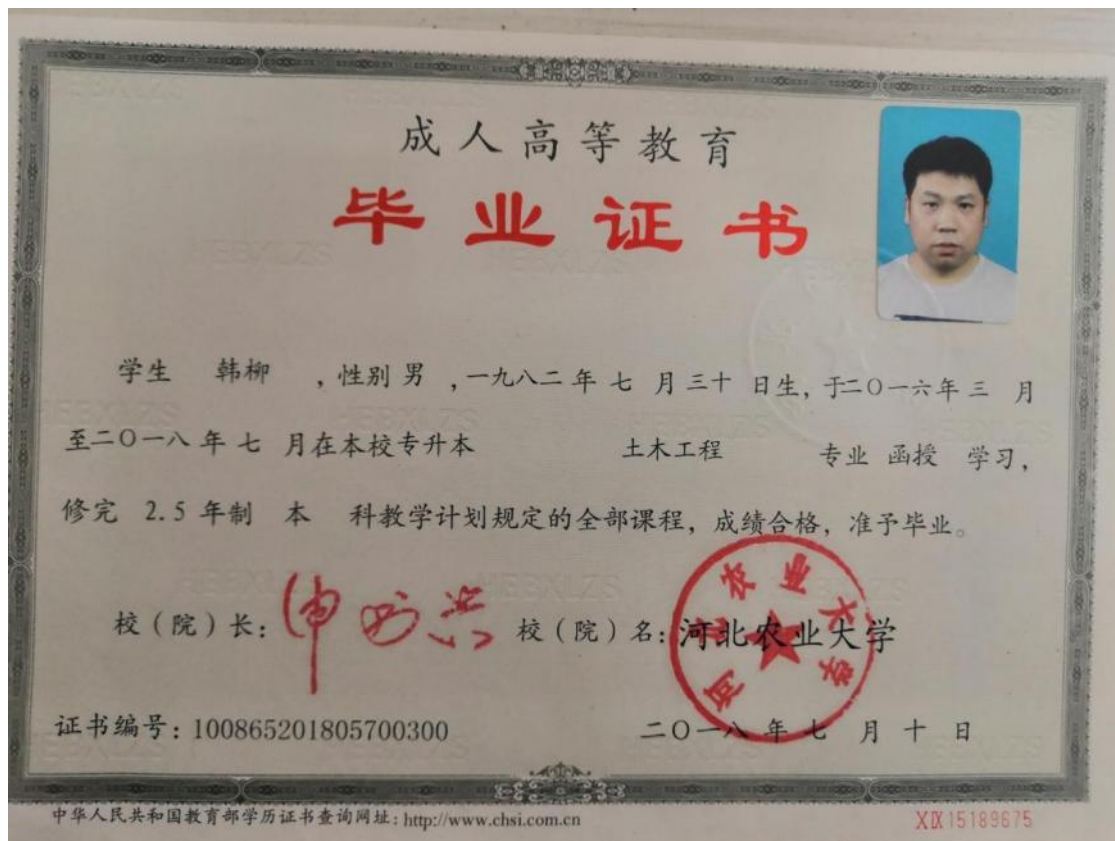 成人高等教育
毕业证书
学生 韩柳 ，性别 男 ，一九八二年 七 月三十 日生，于二〇一六年 三 月
至二〇一八 年 七 月在本校专升本 土木工程 专业 函授 学习，
修完 2.5 年制 本 科教学计划规定的全部课程，成绩合格，准予毕业。
校（院）长： 校（院）名：河北农业大学
河北农业大学
证书编号：100865201805700300 二〇一八 年 七 月 十 日
中华人民共和国教育部学历证书查询网址：http://www.chsi.com.cn
XIX15189675
HEBXLZS